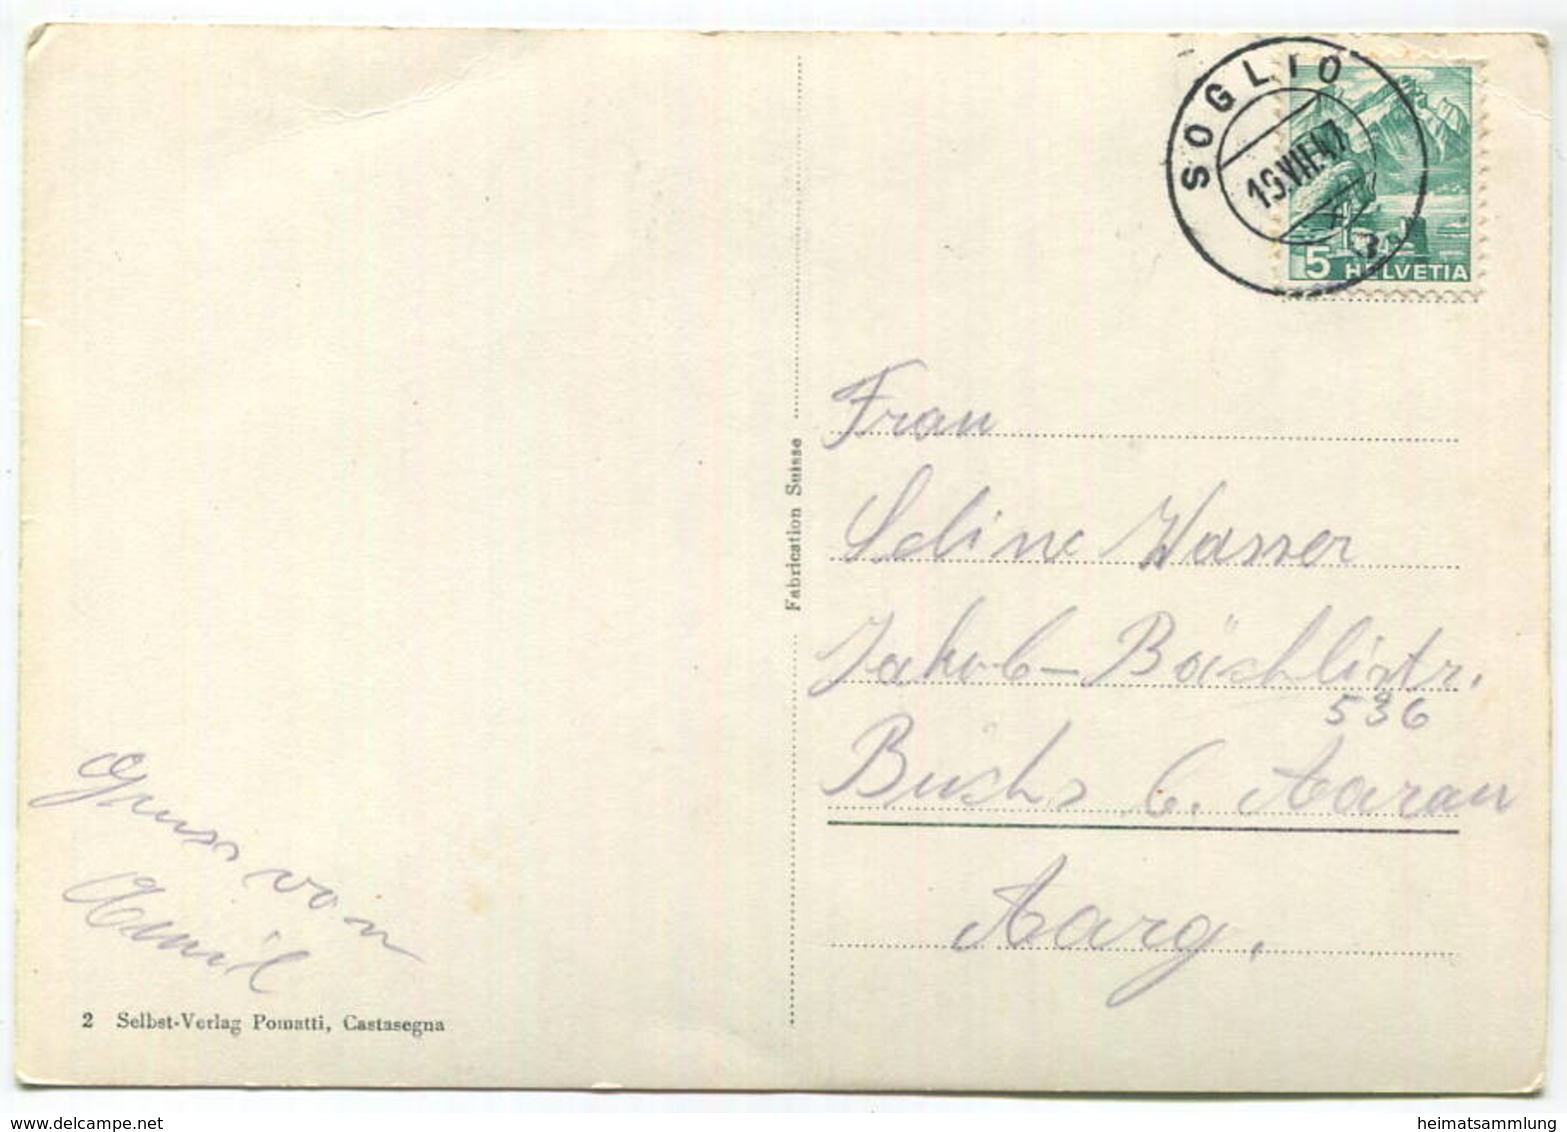 SOGLIO
19.VII.47
5 HELVETIA
Frau
Seline Wasser
Jakob-Bächlistr.
536
Buchs b. Aarau
Aarg.
Fabrication Suisse
Gruss von
2 Selbst-Verlag Pomatti, Castasegna
www.delcampe.net
heimatsammlung